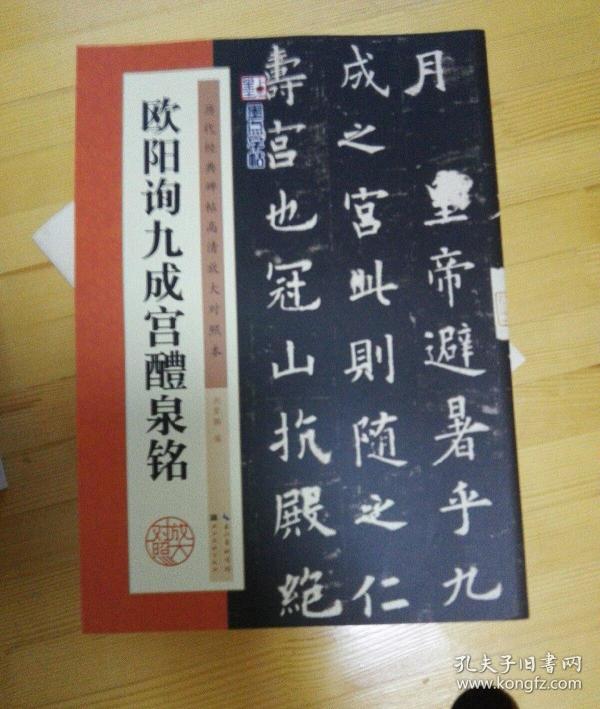 欧阳询九成宫醴泉铭
历代经典碑帖高清放大对照本
放大
对照
墨点字帖
月 皇帝避暑乎九
成之宫此則随之仁
壽宫也冠山抗殿絶
孔夫子旧书网
www.kongfz.com